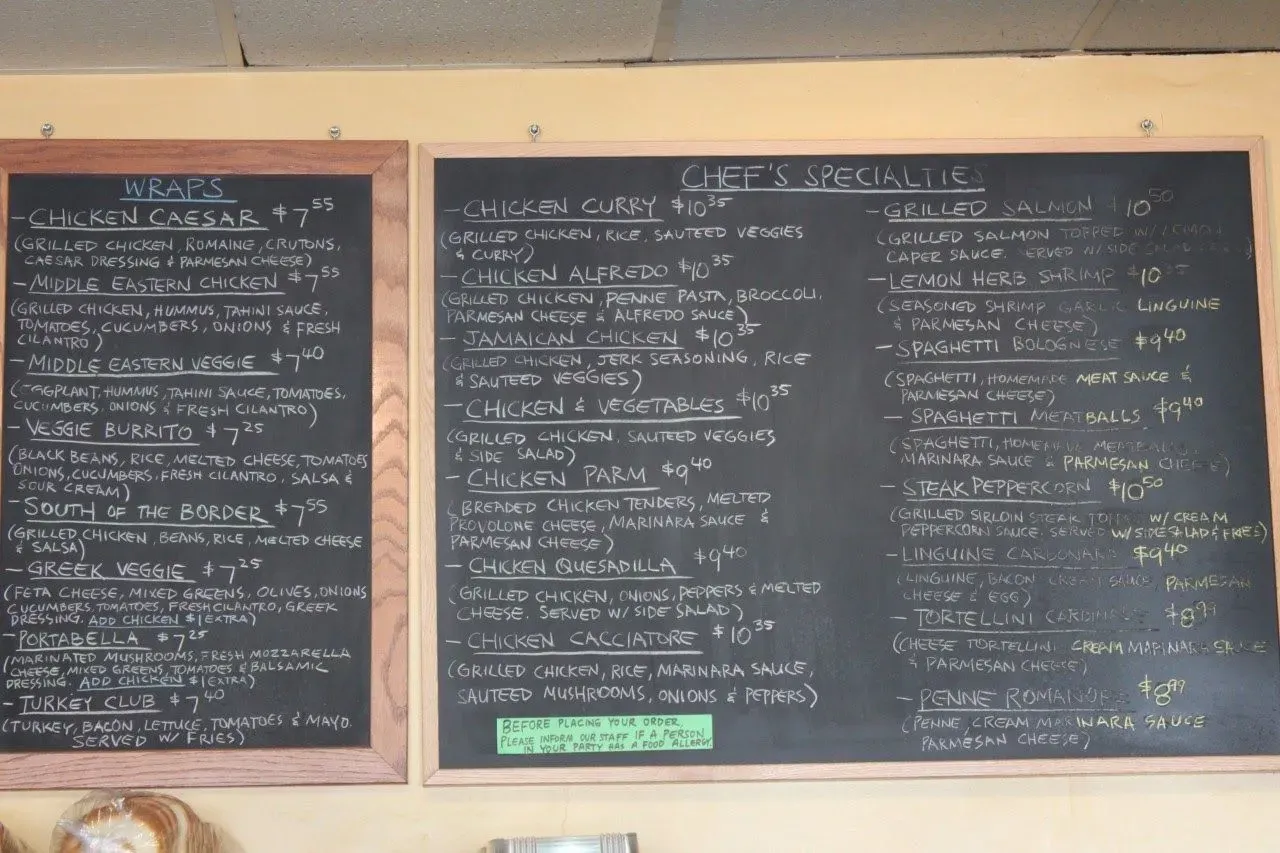 WRAPS
- CHICKEN CAESAR $7.55
(GRILLED CHICKEN, ROMAINE, CRUTONS,
CAESAR DRESSING & PARMESAN CHEESE)
- MIDDLE EASTERN CHICKEN $7.55
(GRILLED CHICKEN, HUMMUS, TAHINI SAUCE,
TOMATOES, CUCUMBERS, ONIONS & FRESH
CILANTRO)
- MIDDLE EASTERN VEGGIE $7.40
(EGGPLANT, HUMMUS, TAHINI SAUCE, TOMATOES,
CUCUMBERS, ONIONS & FRESH CILANTRO)
- VEGGIE BURRITO $7.25
(BLACK BEANS, RICE, MELTED CHEESE, TOMATOES
ONIONS, CUCUMBERS, FRESH CILANTRO, SALSA &
SOUR CREAM)
- SOUTH OF THE BORDER $7.55
(GRILLED CHICKEN, BEANS, RICE, MELTED CHEESE
& SALSA)
- GREEK VEGGIE $7.25
(FETA CHEESE, MIXED GREENS, OLIVES, ONIONS
CUCUMBERS, TOMATOES, FRESH CILANTRO, GREEK
DRESSING. ADD CHICKEN $1 EXTRA)
- PORTABELLA $7.25
(MARINATED MUSHROOMS, FRESH MOZZARELLA
CHEESE, MIXED GREENS, TOMATOES & BALSAMIC
DRESSING. ADD CHICKEN $1 EXTRA)
- TURKEY CLUB $7.40
(TURKEY, BACON, LETTUCE, TOMATOES & MAYO.
SERVED W/ FRIES)
CHEF'S SPECIALTIES
- CHICKEN CURRY $10.35
(GRILLED CHICKEN, RICE, SAUTEED VEGGIES
& CURRY)
- CHICKEN ALFREDO $10.35
(GRILLED CHICKEN, PENNE PASTA, BROCCOLI,
PARMESAN CHEESE & ALFREDO SAUCE)
- JAMAICAN CHICKEN $10.35
(GRILLED CHICKEN, JERK SEASONING, RICE
& SAUTEED VEGGIES)
- CHICKEN & VEGETABLES $10.35
(GRILLED CHICKEN, SAUTEED VEGGIES
& SIDE SALAD)
- CHICKEN PARM $9.40
(BREADED CHICKEN TENDERS, MELTED
PROVOLONE CHEESE, MARINARA SAUCE &
PARMESAN CHEESE)
- CHICKEN QUESADILLA $9.40
(GRILLED CHICKEN, ONIONS, PEPPERS & MELTED
CHEESE. SERVED W/ SIDE SALAD)
- CHICKEN CACCIATORE $10.35
(GRILLED CHICKEN, RICE, MARINARA SAUCE,
SAUTEED MUSHROOMS, ONIONS & PEPPERS)
BEFORE PLACING YOUR ORDER,
PLEASE INFORM OUR STAFF IF A PERSON
IN YOUR PARTY HAS A FOOD ALLERGY.
- GRILLED SALMON $10.50
(GRILLED SALMON TOPPED W/ LEMON
CAPER SAUCE. SERVED W/ SIDE SALAD
- LEMON HERB SHRIMP $10.35
(SEASONED SHRIMP GARLIC LINGUINE
& PARMESAN CHEESE)
- SPAGHETTI BOLOGNESE $9.40
(SPAGHETTI, HOMEMADE MEAT SAUCE &
PARMESAN CHEESE)
- SPAGHETTI MEATBALLS $9.40
(SPAGHETTI, HOMEMADE MEATBALLS,
MARINARA SAUCE & PARMESAN CHEESE)
- STEAK PEPPERCORN $10.50
(GRILLED SIRLOIN STEAK TOPPED W/ CREAM
PEPPERCORN SAUCE. SERVED W/ SIDE SALAD & FRIES)
- LINGUINE CARBONARA $9.40
(LINGUINE, BACON CREAM SAUCE, PARMESAN
CHEESE & EGG)
- TORTELLINI CARDINALE $8.99
(CHEESE TORTELLINI, CREAM MARINARA SAUCE
& PARMESAN CHEESE)
- PENNE ROMANOFF $8.99
(PENNE, CREAM MARINARA SAUCE
PARMESAN CHEESE)